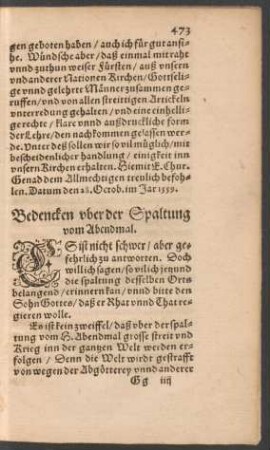 473
gen geboten haben / auch ich für gut ansi-
he. Wündsche aber / daß einmal mit raht
vnnd zuthun weiser Fürsten / auß vnsern
vnnd anderer Nationen Kirchen / Gottseli-
ge vnnd gelehrte Männer zusammen ge-
ruffen / vnd von allen streittigen Artickeln
vnterredung gehalten / vnd eine einhelli-
ge rechte / klare vnnd außdruckliche form
der Lehre / den nachkommen gelassen wer-
de. Vnter deß sollen wir so vil müglich / mit
bescheidenlicher handlung / einigkeit inn
vnsern Kirchen erhalten. Hiemit E. Chur.
Genad dem Allmechtigen trewlich befoh-
len. Datum den Octob. im Jar 1559.
Bedencken vber der Spaltung
vom Abendmal.
ES ist nicht schwer / aber ge-
fehrlich zu antworten. Doch
will ich sagen / so vil ich jetzund
die spaltung desselben Orts
belangend / erinnern kan / vnnd bitte den
Sohn Gottes / daß er Rhat vnnd That re-
gieren wolle.
Es ist kein zweiffel / daß vber der spal-
tung vom H. Abendmal grosse streit vnd
Krieg inn der gantzen Welt werden er-
folgen / Denn die Welt wirdt gestrafft
von wegen der Abgötterey vnnd anderer
Gg iiij